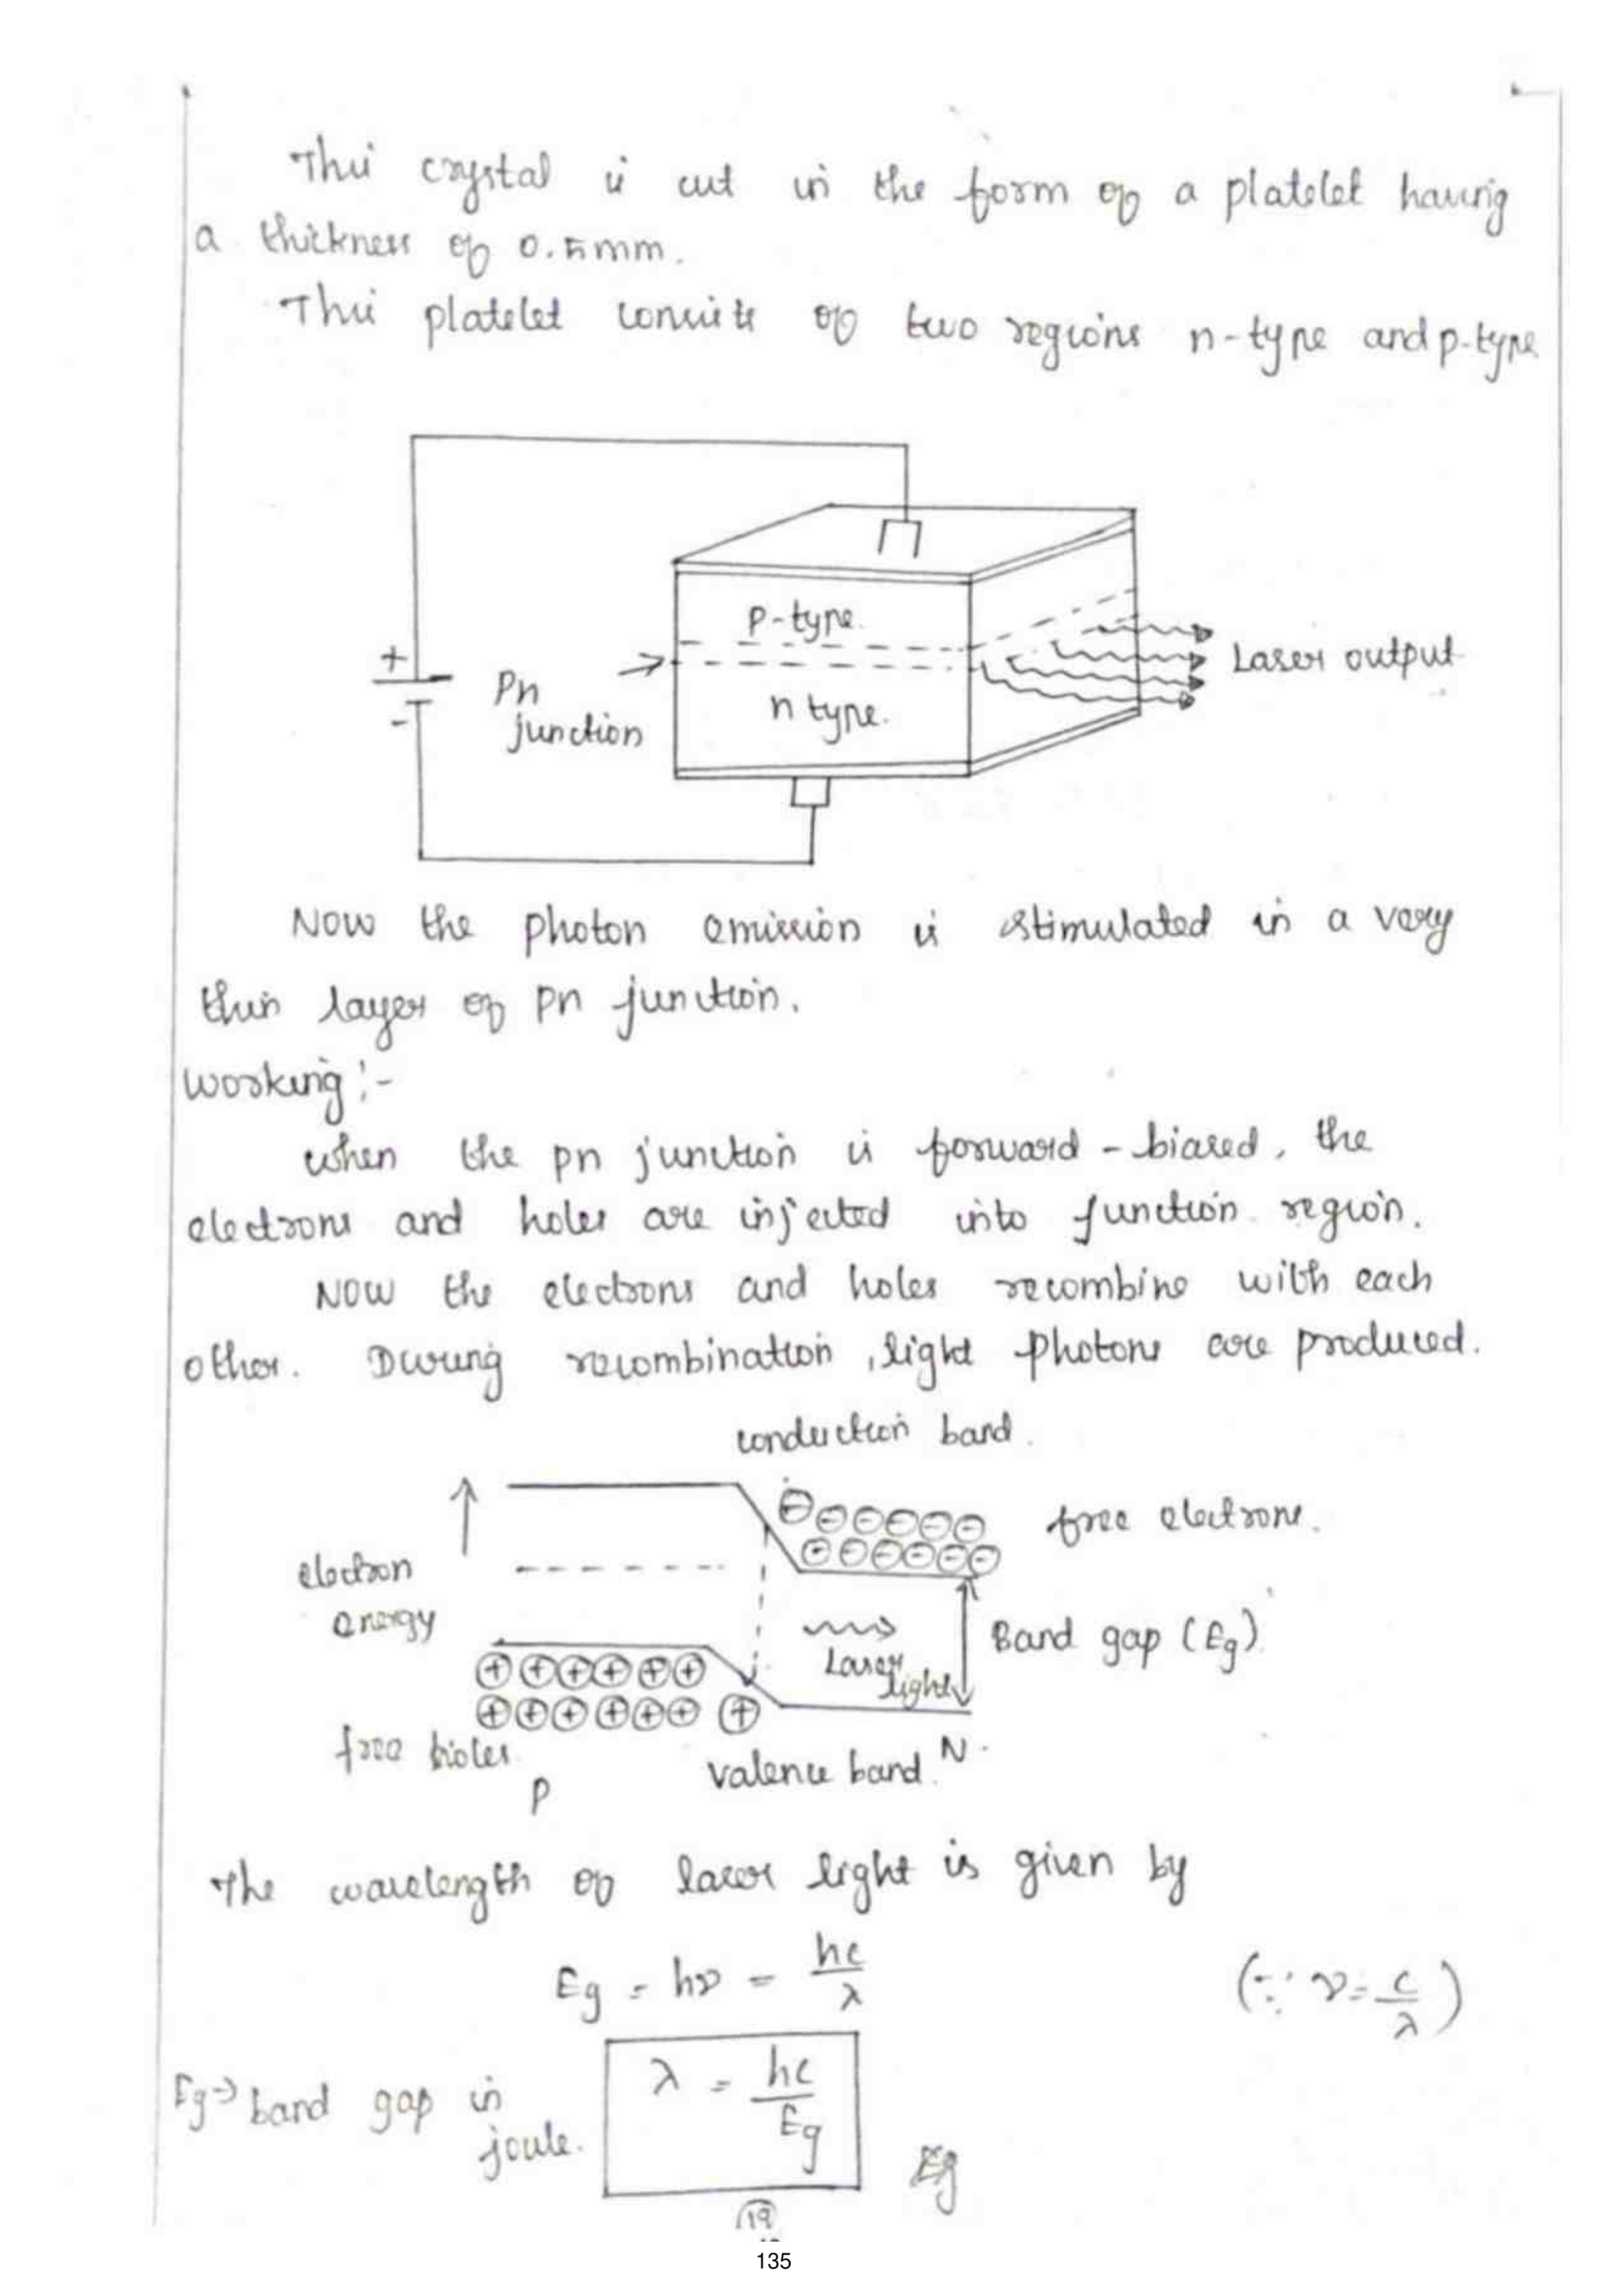 This crystal is cut in the form of a platelet having
a thickness of 0.5mm.
This platelet consists of two regions n-type and p-type
p-type.
+
Pn
junction
-
n type.
Laser output
Now the photon emission is stimulated in a very
thin layer of pn junction.
Working:-
when the pn junction is forward-biased, the
electrons and holes are injected into junction region.
Now the electrons and holes recombine with each
other. During recombination, light photons are produced.
conduction band.
free electrons.
electron
energy
Band gap (Eg)
Laser
light
free holes
P
valence band.
N.
The wavelength of laser light is given by
Eg = hν = hc/λ (∵ ν = c/λ)
λ = hc/Eg
Eg → band gap in
joule.
Eg
19
135